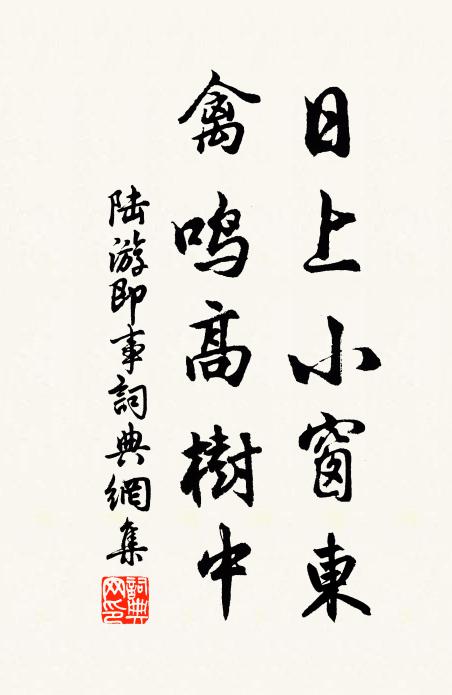 日上小窗東
禽鳴高樹中
陆游即事詞典網集
詞典網印